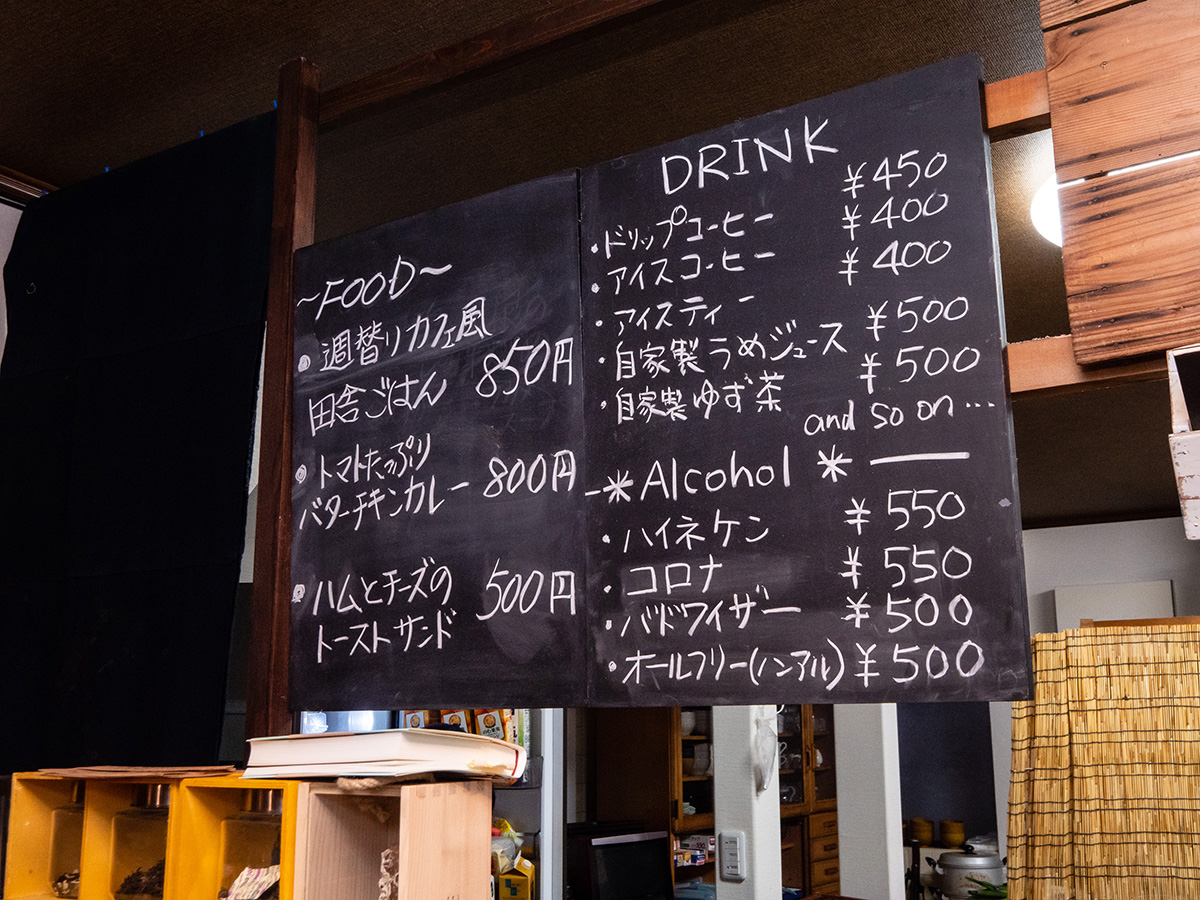 ~FOOD~
・週替りカフェ風
田舎ごはん 850円
・トマトたっぷり
バターチキンカレー 800円
・ハムとチーズの
トーストサンド 500円
DRINK
・ドリップコーヒー ¥450
・アイスコーヒー ¥400
・アイスティー ¥400
・自家製うめジュース ¥500
・自家製ゆず茶 ¥500
and so on…
-*Alcohol *—
・ハイネケン ¥550
・コロナ ¥550
・バドワイザー ¥500
・オールフリー(ノンアル) ¥500